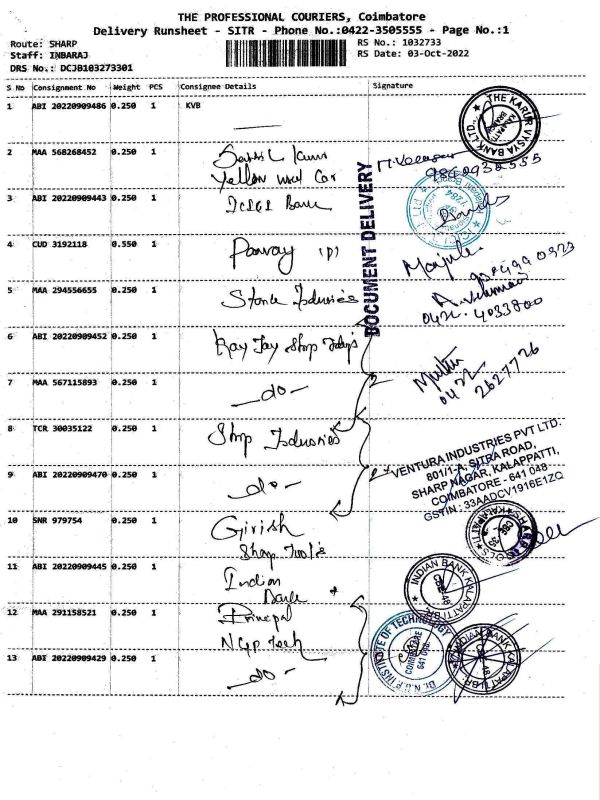 THE PROFESSIONAL COURIERS, Coimbatore
Delivery Runsheet - SITR - Phone No.:0422-3505555 - Page No.:1
Route: SHARP
RS No.: 1032733
Staff: INBARAJ
RS Date: 03-Oct-2022
DRS No.: DCJB103273301
S No Consignment No Weight PCS Consignee Details Signature
1 ABI 20220909486 0.250 1 KVB
THE KARUR VYSYA BANK LTD.,
2 MAA 568268452 0.250 1
Yellow mat Car
3 ABI 20220909443 0.250 1 Bank
DOCUMENT DELIVERY
4 CUD 3192118 0.550 1 (P)
5 MAA 294556655 0.250 1
0422. 4033800
6 ABI 20220909452 0.250 1 Kay Jay Sharp
Muthu
0422
2627726
7 MAA 567115893 0.250 1 -do-
8 TCR 30035122 0.250 1 Shrp Industries
VENTURA INDUSTRIES PVT LTD.
801/1-A, SITRA ROAD,
SHARP NAGAR, KALAPPATTI,
COIMBATORE - 641 048
GSTIN : 33AADCV1916E1ZQ
9 ABI 20220909470 0.250 1 -do-
10 SNR 979754 0.250 1 Girish
Sharp Tools
11 ABI 20220909445 0.250 1 Indian
Bank
INDIAN BANK KALAPATTI BR.
CBE-48
12 MAA 291158521 0.250 1 Principal
NGP Tech
Dr. N.G.P. INSTITUTE OF TECHNOLOGY
COIMBATORE
641 048
INDIAN BANK KALAPATTI BR.
CBE-48
13 ABI 20220909429 0.250 1 -do-